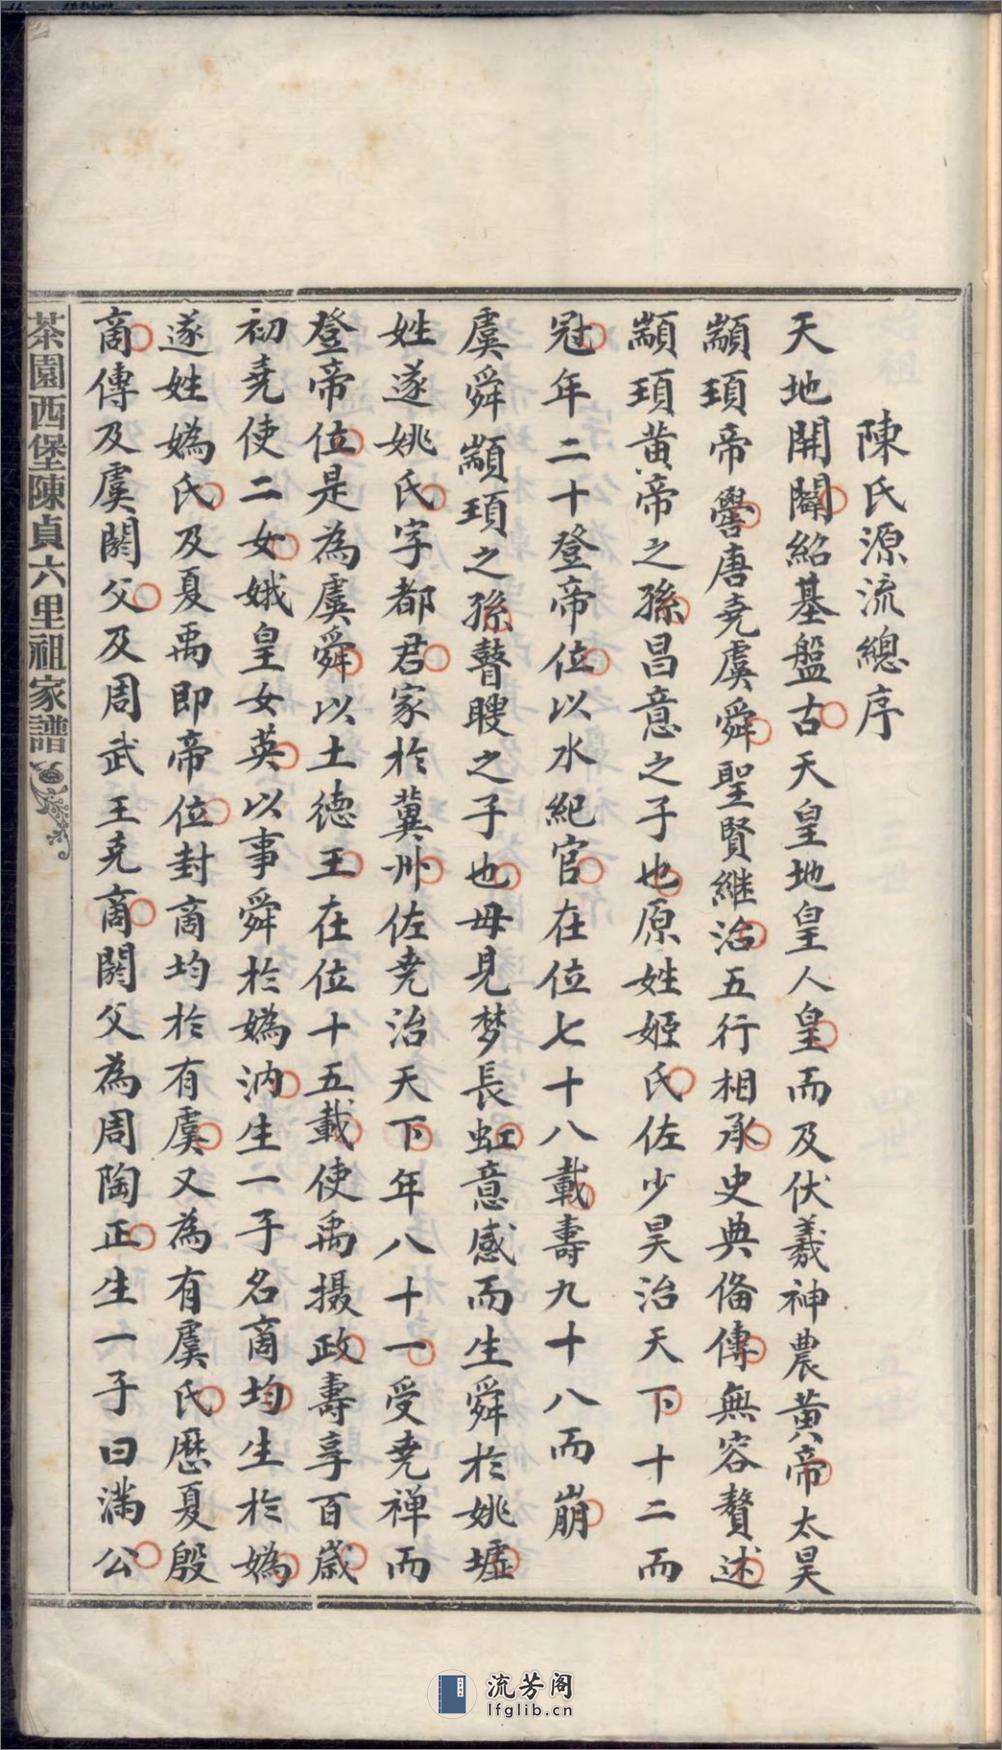 陳氏源流總序
天地開闢紹基盤古天皇地皇人皇而及伏羲神農黃帝太昊
顓頊帝嚳唐堯虞舜聖賢継治五行相承史典俻傳無容贅述
顓頊黃帝之孫昌意之子也原姓姬氏佐少昊治天下十二而
冠年二十登帝位以水紀官在位七十八載壽九十八而崩
虞舜顓頊之孫瞽瞍之子也母見梦長虹意感而生舜於姚墟
姓遂姚氏字都君家於冀州佐堯治天下年八十一受堯禅而
登帝位是為虞舜以土德王在位十五載使禹摄政壽享百歲
初堯使二女娥皇女英以事舜於媯汭生一子名商均生於媯
遂姓媯氏及夏禹即帝位封商均於有虞又為有虞氏歷夏殷
商傳及虞閼父及周武王克商閼父為周陶正生一子曰滿公
茶園西堡陳貞六里祖家譜
流芳阁
lfglib.cn